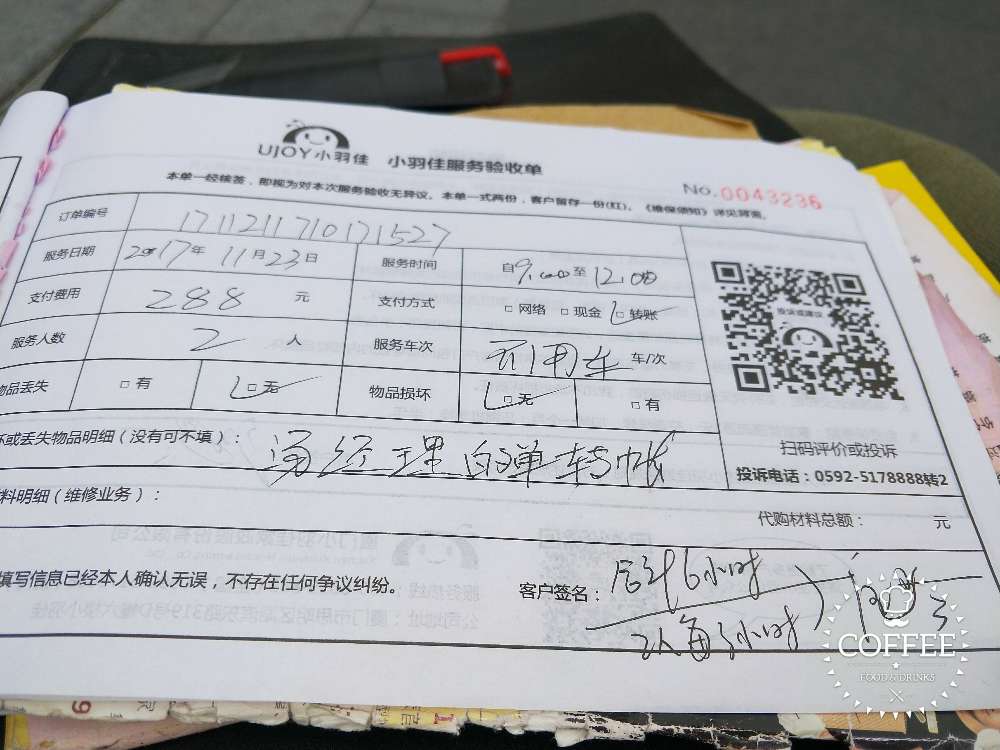 UJOY小羽佳 小羽佳服务验收单
本单一经核签，即视为对本次服务验收无异议。本单一式两份，客户留存一份(红)。《维保须知》详见背面。
No.0043236
订单编号 171121171017152 7
服务日期 2017年 11月23日 服务时间 自9:00至12:00
支付费用 288 元 支付方式 □网络 □现金 □转账
服务人数 2 人 服务车次 车/次
物品丢失 □有 □无 物品损坏 □无 □有
投诉或建议
扫码评价或投诉
投诉电话：0592-5178888转2
坏或丢失物品明细（没有可不填）：
经理 转帐
料明细（维修业务）：
代购材料总额： 元
填写信息已经本人确认无误，不存在任何争议纠纷。
客户签名： 6小时
2人每3小时
COFFEE
FOOD & DRINKS